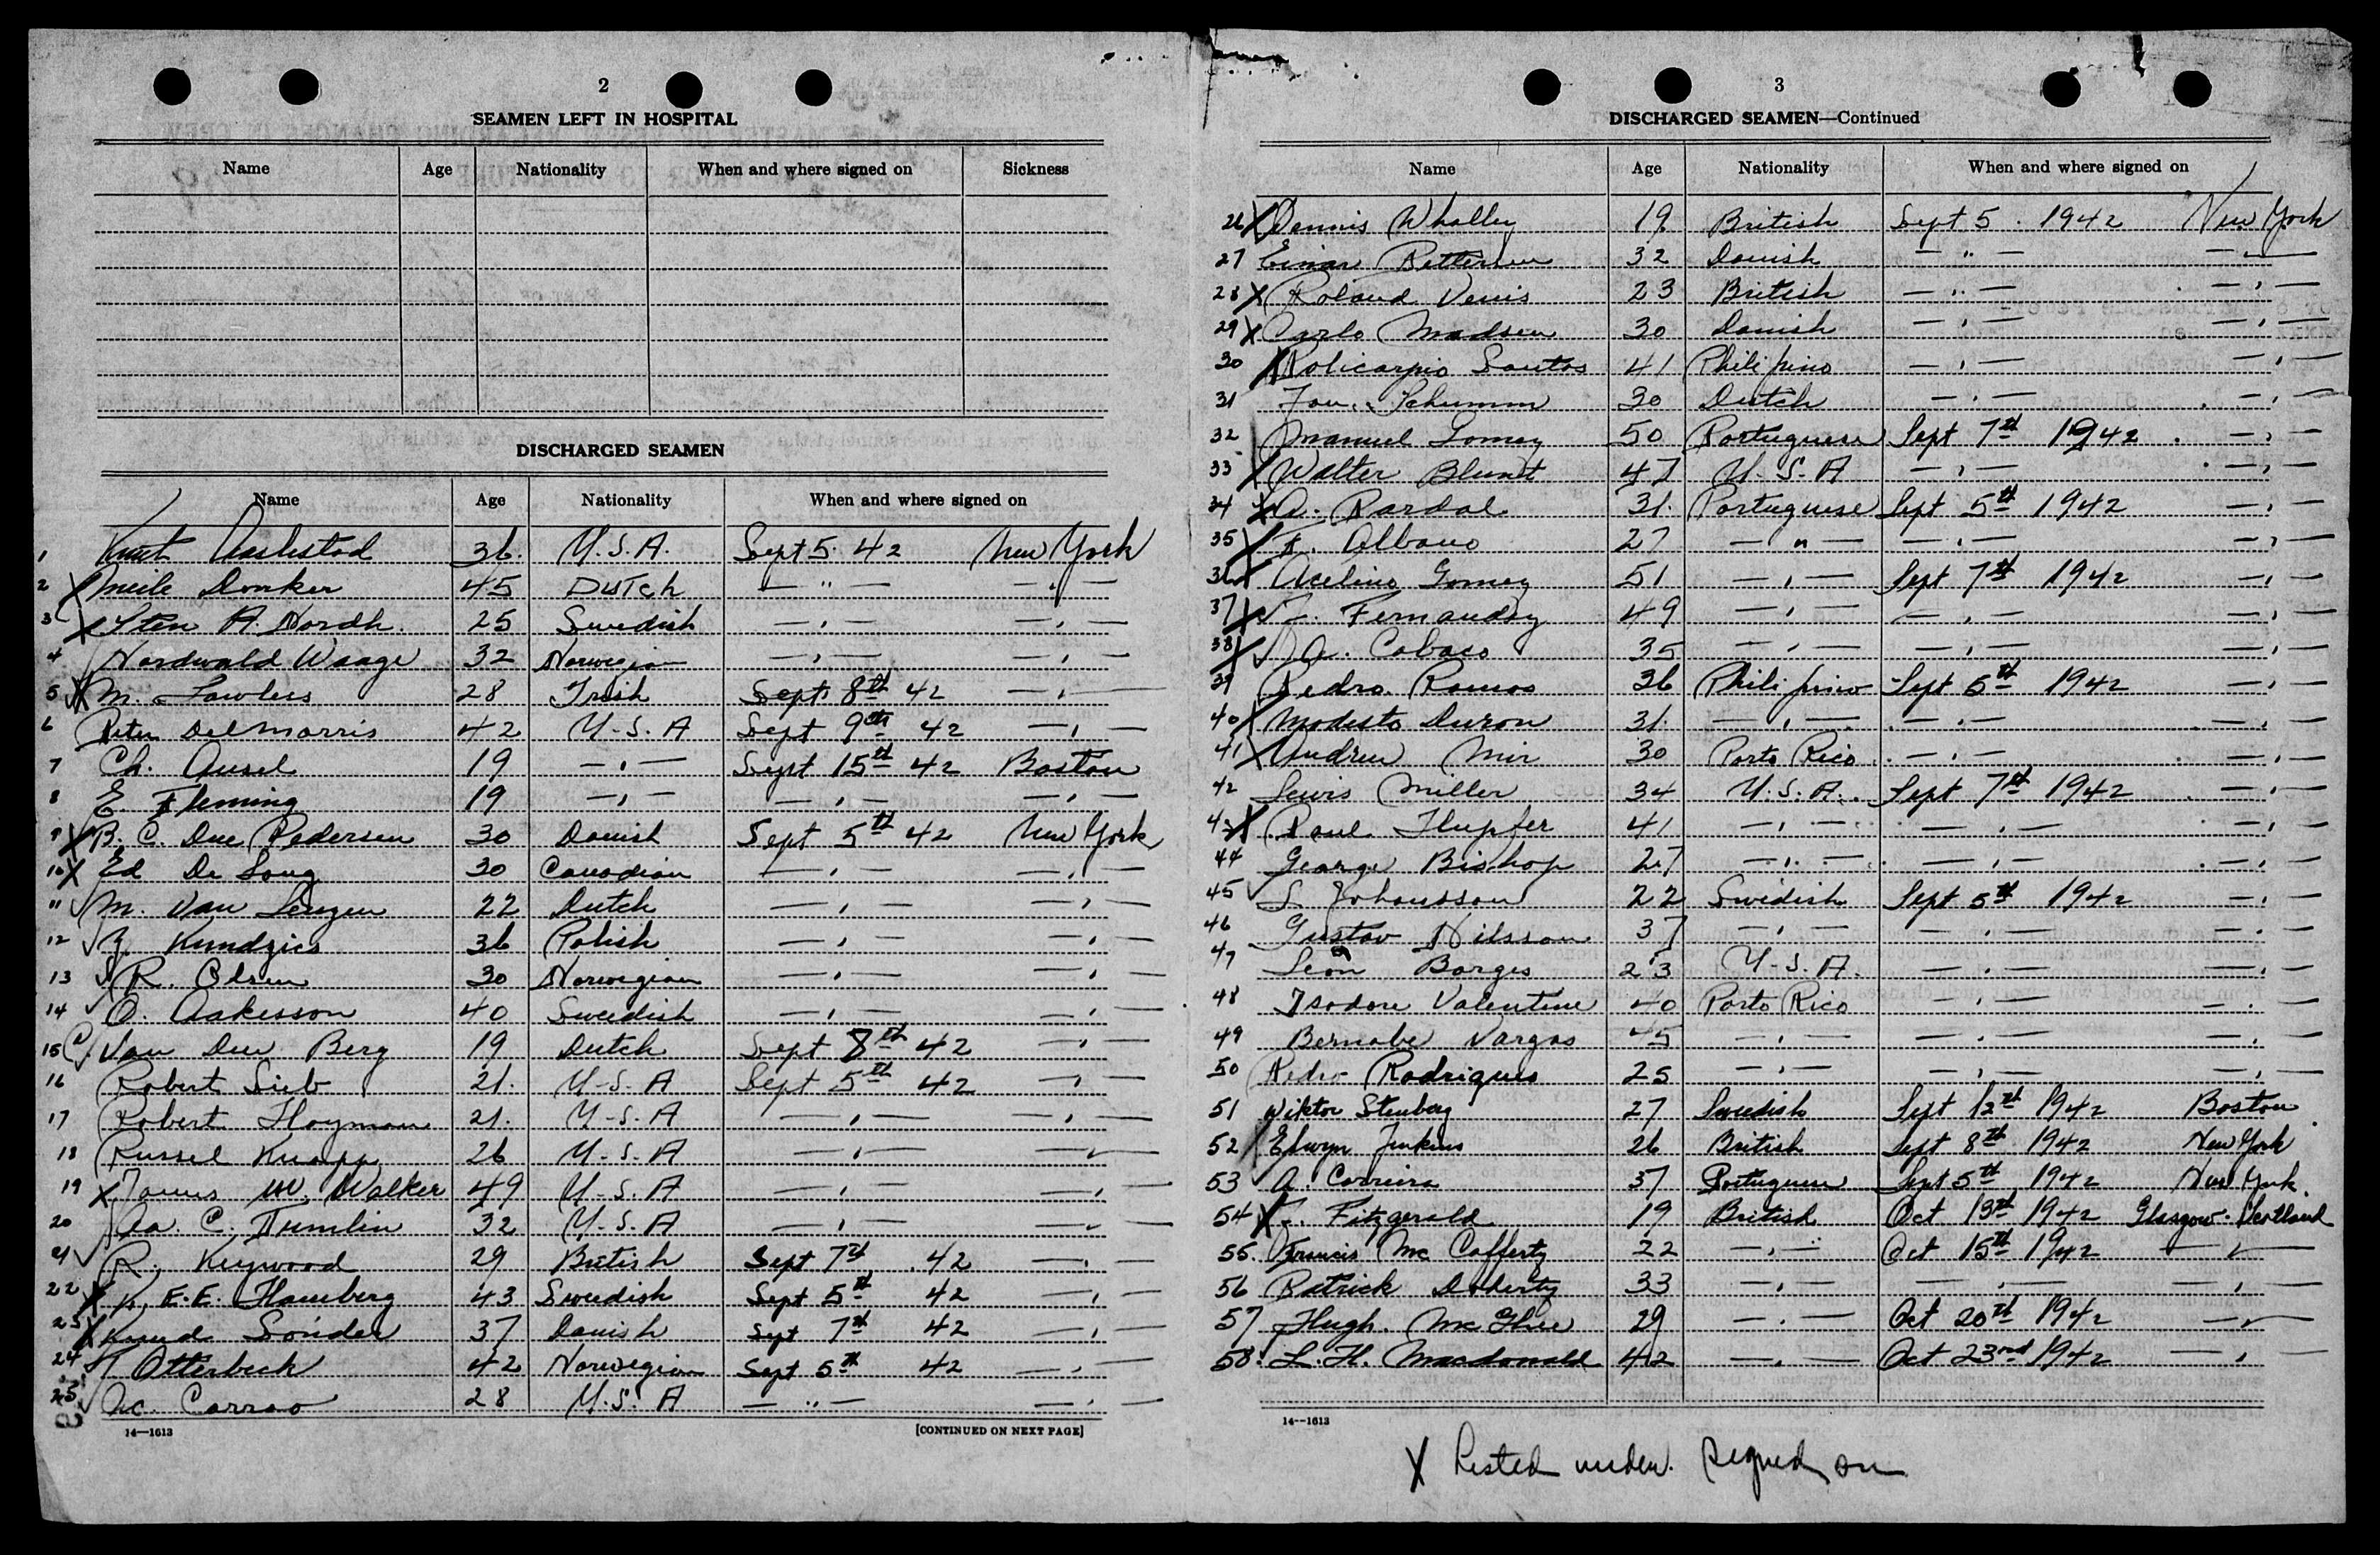 2
SEAMEN LEFT IN HOSPITAL
Name Age Nationality When and where signed on Sickness
DISCHARGED SEAMEN
Name Age Nationality When and where signed on
1 Knut Aaslestad 36. U.S.A. Sept 5. 42 New York
2 X Meile Donker 45 Dutch — " — — " —
3 X Sten A. Nordh. 25 Swedish — " — — " —
4 Nordwald Waage 32 Norwegian — " — — " —
5 X M. Lawless 28 Irish Sept 8th 42 — " —
6 Peter Delmorris 42 U.S.A Sept 9th 42 — " —
7 Ch. Ausel 19 — " — Sept 15th 42 Boston
8 E Fleming 19 — " — — " — — " —
9 X B. C. Due Pedersen 30 Danish Sept 5th 42 New York
10 X Ed De Long 30 Canadian — " — — " —
11 ✓ M. Van Lengen 22 Dutch — " — — " —
12 ✓ Kundzics 36 Polish — " — — " —
13 ✓ R. Olsen 30 Norwegian — " — — " —
14 ✓ O. Aakesson 40 Swedish — " — — " —
15 C. Van Den Berg 19 Dutch Sept 8th 42 — " —
16 Robert Sieb 21. U.S.A Sept 5th 42 — " —
17 Robert Hoyman 21. U.S.A — " — — " —
18 Russel Knapp 26 U.S.A — " — — " —
19 X James W. Walker 49 U.S.A — " — — " —
20 C. Tumlin 32 U.S.A — " — — " —
21 ✓ R. Keywood 29 British Sept 7th 42 — " —
22 X K. E. E. Hamberg 43 Swedish Sept 5th 42 — " —
23 X Knud Sonder 37 Danish Sept 7th 42 — " —
24 Otterbeck 42 Norwegian Sept 5th 42 — " —
25 ✓ Carrao 28 U.S.A — " — — " —
14—1613 [CONTINUED ON NEXT PAGE]
3
DISCHARGED SEAMEN—Continued
Name Age Nationality When and where signed on
26 X Dennis Whalley 19 British Sept 5. 1942 New York
27 Einar Pettersen 32 Danish — " — — " —
28 X Roland Venis 23 British — " — — " —
29 X Carlo Madsen 30 Danish — " — — " —
30 X Policarpio Santos 41 Philipino — " — — " —
31 Schumm 30 Dutch — " — — " —
32 Manuel Gomez 50 Portuguese Sept 7th 1942 — " —
33 X Walter Blunt 47 U.S.A — " — — " —
34 X A. Pardal 31. Portuguese Sept 5th 1942 — " —
35 X F. Albano 27 — " — — " — — " —
36 X Avelino Gomez 51 — " — Sept 7th 1942 — " —
37 X Fernandez 49 — " — — " — — " —
38 X A. Cabaco 35 — " — — " — — " —
39 Pedro Ramos 36 Philipino Sept 5th 1942 — " —
40 X Modesto Duron 31. — " — — " — — " —
41 X Andrew Mir 30 Porto Rico — " — — " —
42 Lewis Miller 34 U.S.A. Sept 7th 1942 — " —
43 X Paul Hupfer 41 — " — — " — — " —
44 George Bishop 27 — " — — " — — " —
45 ✓ S. Johansson 22 Swedish Sept 5th 1942 — " —
46 Gustav Nilsson 37 — " — — " — — " —
47 Leon Borges 23 U.S.A. — " — — " —
48 Isodore Valentine 40 Porto Rico — " — — " —
49 Bernabe Vargas 45 — " — — " — — " —
50 Pedro Rodrigues 25 — " — — " — — " —
51 Wiktor Stenberg 27 Swedish Sept 12th 1942 Boston
52 Edwyn Jenkins 26 British Sept 8th 1942 New York
53 ✓ A Correira 37 Portuguese Sept 5th 1942 New York.
54 X Fitzgerald 19 British Oct 13th 1942 Glasgow. Scotland
55. Francis Mc Cafferty 22 — " — Oct 15th 1942 — " —
56 Patrick Doherty 33 — " — — " — — " —
57 Hugh. Mc Ghee 29 — " — Oct 20th 1942 — " —
58. L. H. Macdonald 42 — " — Oct 23rd 1942 — " —
14—1613
X Listed under signed on